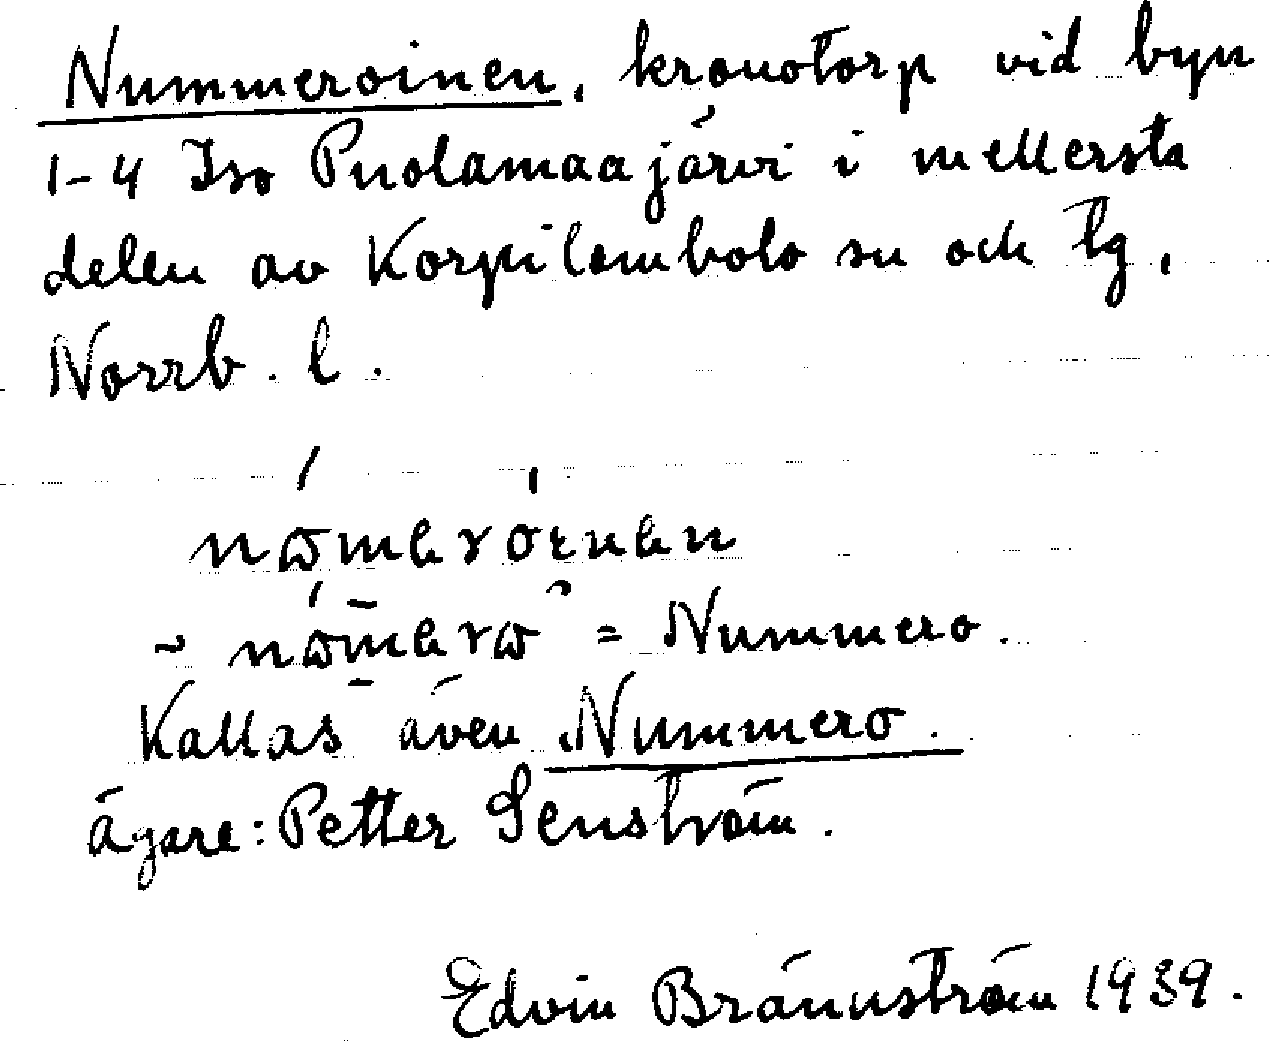 Nummeroinen, kronotorp vid byn
1-4 Iso Puolamaajärvi i mellersta
delen av Korpilombolo sn och tg,
Norrb. l.
= Nummero.
Kallas även Nummero.
ägare: Petter Senström.
Edvin Brännström 1939.